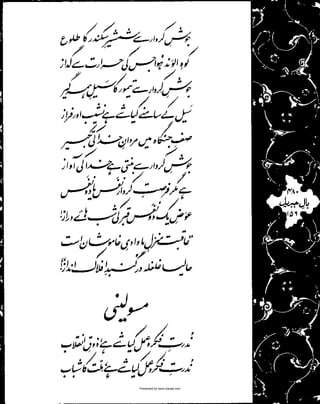 جوشِ کردار سے شمشیرِ سکندر کا طلوع
کوہِ الوند ہوا جس کی حرارت سے گداز
جوشِ کردار سے تیمور کا سیلِ ہمہ گیر
سیل کے سامنے کیا شے ہے نشیب اور فراز
صفِ جنگاہ میں مردانِ خدا کی تکبیر
جوشِ کردار سے بنتی ہے خدا کی آواز
ہے مگر فرصتِ کردار نفس یا دو نفس
عوضِ یک دو نفس قبر کی شب ہائے دراز
”عاقبت منزلِ ما وادیِ خاموشان است
حالیا غلغلہ در گنبدِ افلاک انداز“!
مسولینی
ندرتِ فکر و عمل کیا شے ہے ذوقِ انقلاب
ندرتِ فکر و عمل کیا شے ہے ملت کا شباب
۴۸۰
بالِ جبریل
۱۵۶
Presented by www.ziaraat.com